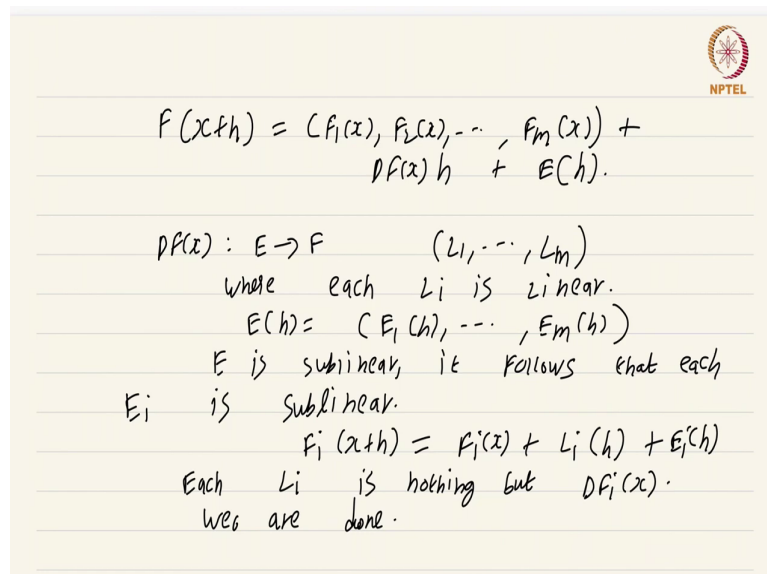 NPTEL
F(x+h) = (F₁(x), F₂(x), - - · , Fm(x)) +
DF(x)h + E(h).
DF(x) : E → F (L₁, - - · , Lm)
where each Li is Linear.
E(h) = (E₁(h), - - - , Em(h))
E is sublinear, it follows that each
Ei is sublinear.
Fi(x+h) = Fi(x) + Li(h) + Ei(h)
Each Li is nothing but DFi(x).
We are done.